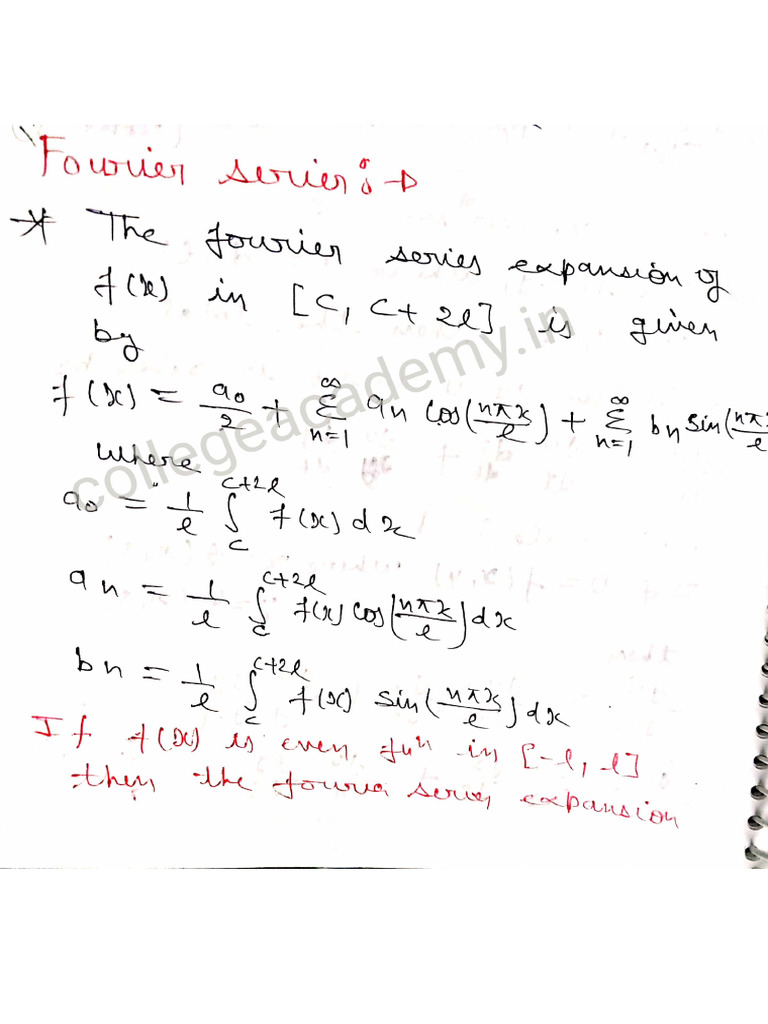 Fourier series:→
* The fourier series expansion of
f(x) in [c, c+2l] is given
by
f(x) = a0/2 + Σ_{n=1}^{∞} an cos(nπx/l) + Σ_{n=1}^{∞} bn sin(nπx/l
where
a0 = 1/l ∫_c^{c+2l} f(x) dx
an = 1/l ∫_c^{c+2l} f(x) cos(nπx/l) dx
bn = 1/l ∫_c^{c+2l} f(x) sin(nπx/l) dx
If f(x) is even fuⁿ in [-l, l]
then the fourier series expansion
collegeacademy.in